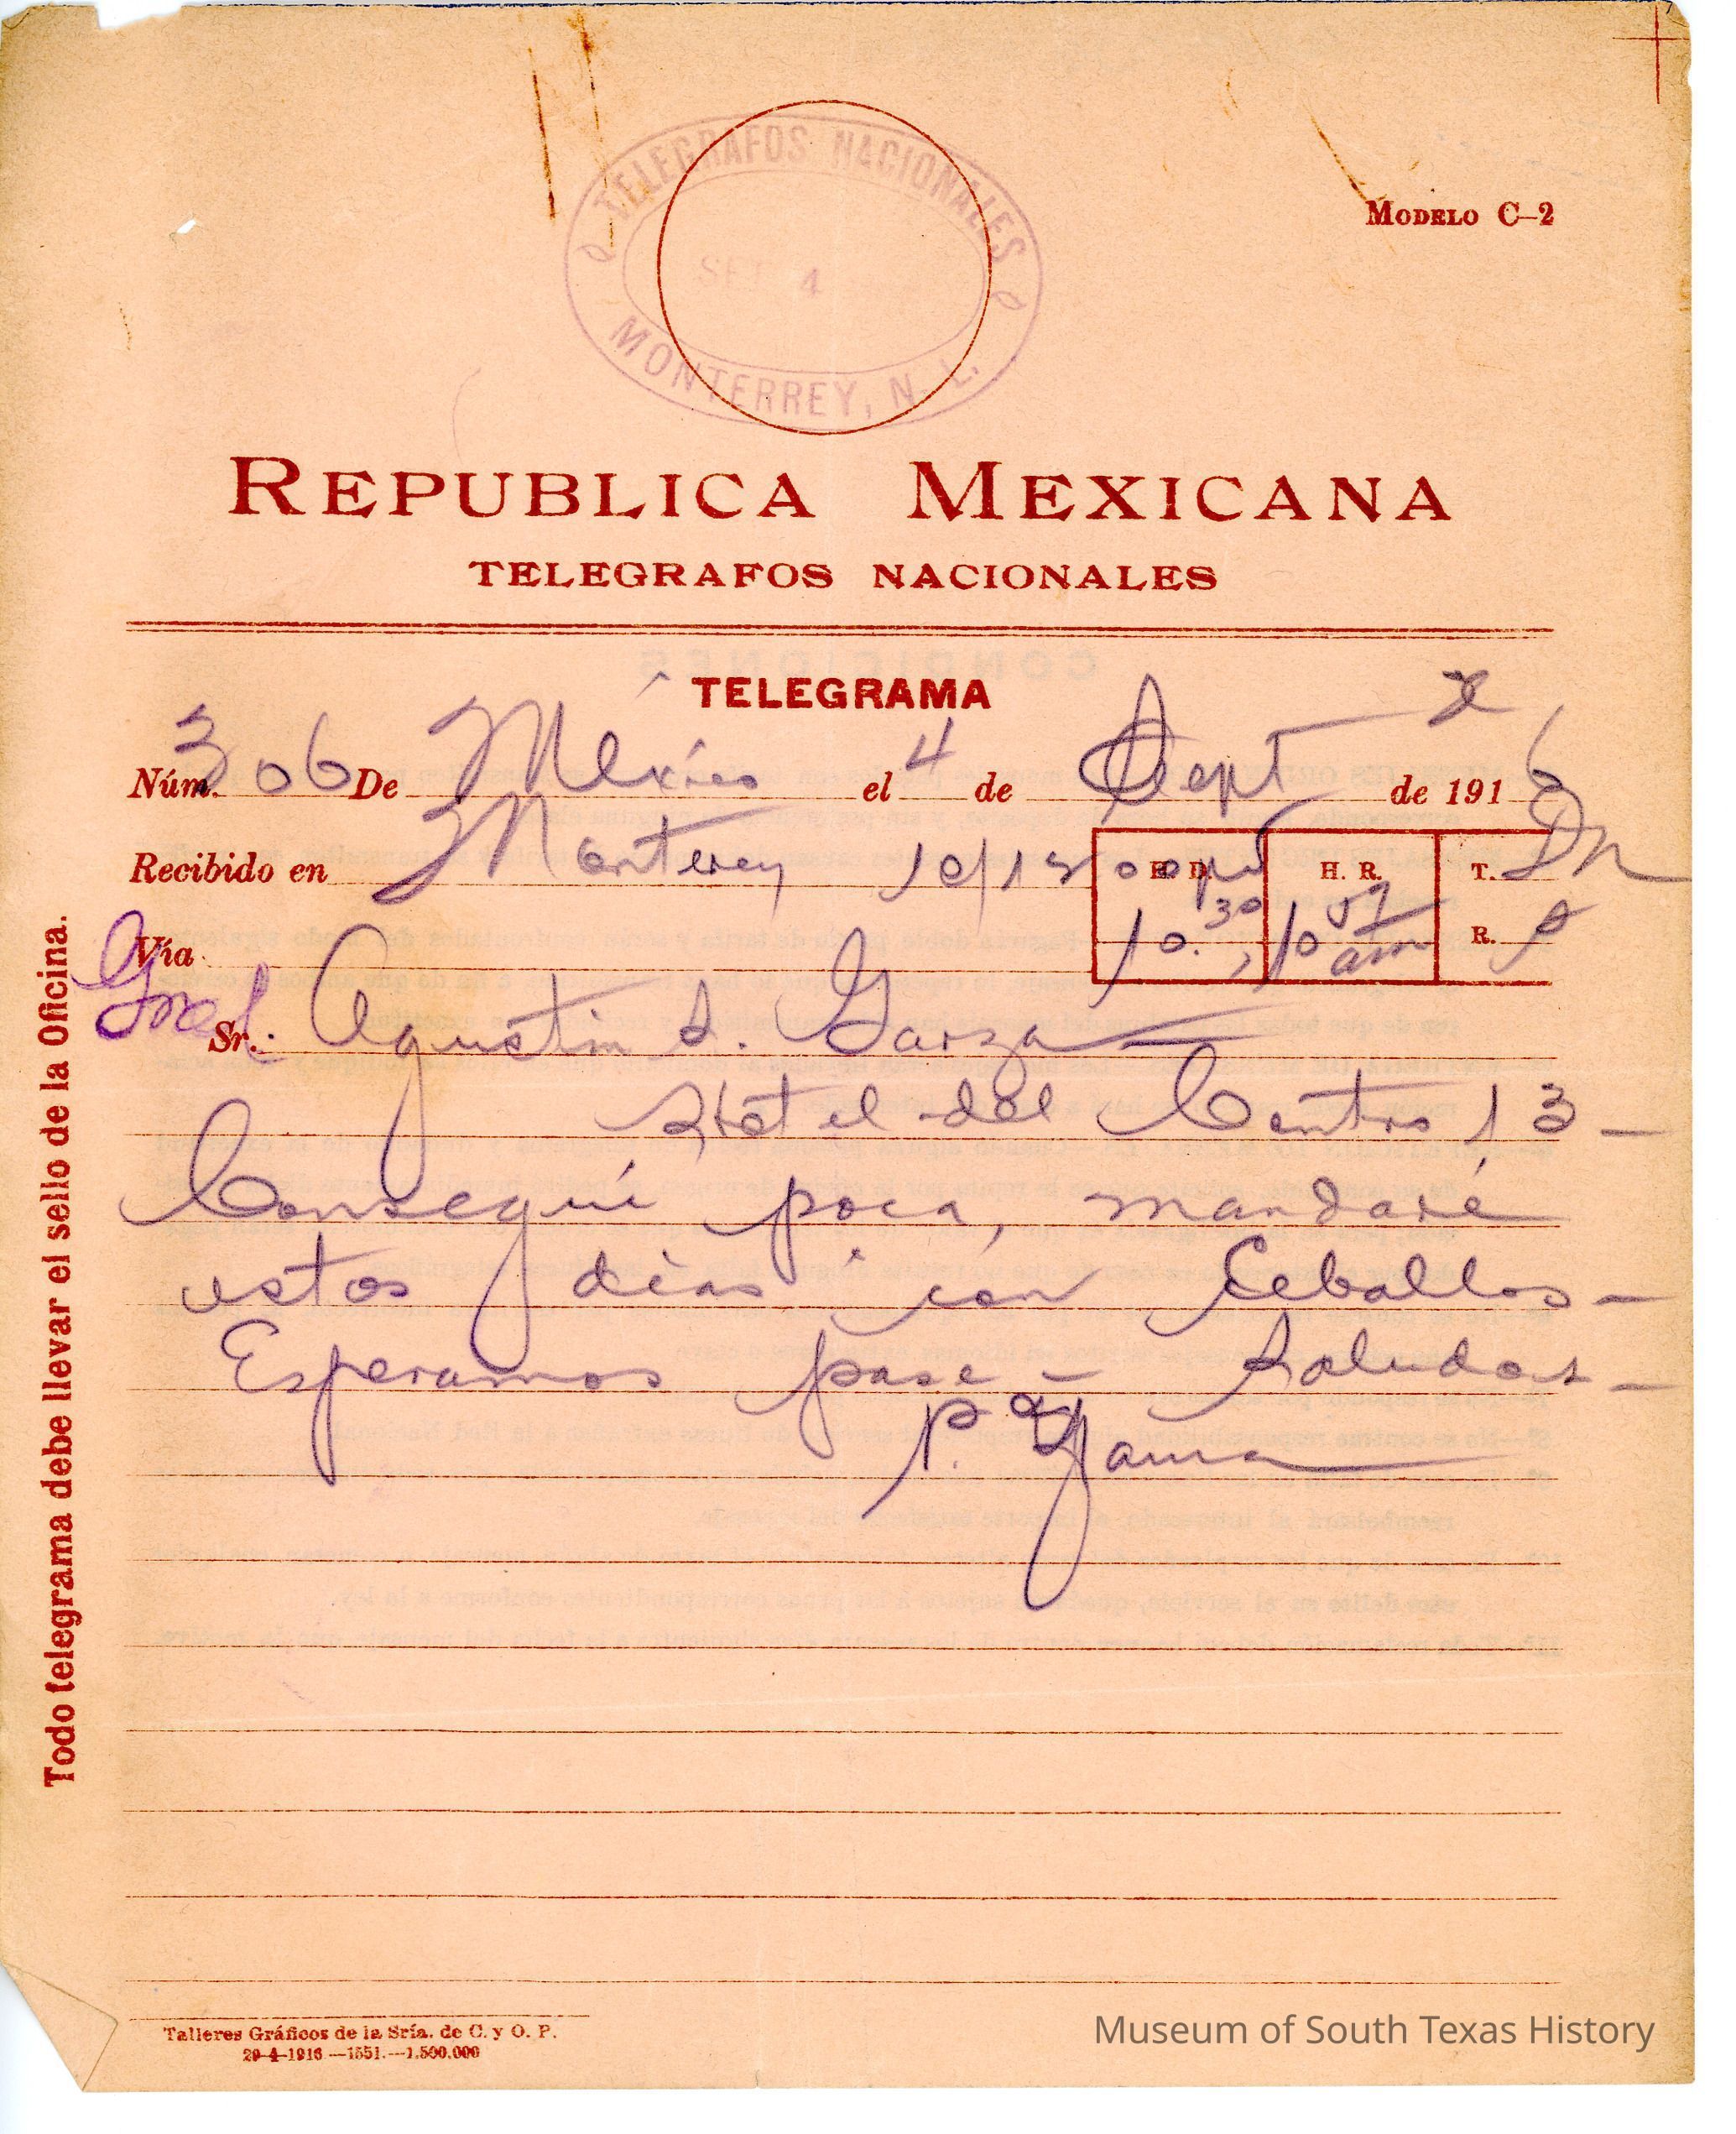 TELEGRAFOS NACIONALES
SET 4
MONTERREY, N. L.
MODELO C-2
REPUBLICA MEXICANA
TELEGRAFOS NACIONALES
TELEGRAMA
Núm. 306 De México el 4 de Sept de 1916
Recibido en Monterey 10/13 H. D. H. R. T. Dn
Vía 10.30 10 57 am R.
Gral Sr. Agustin S. Garza
Hotel del Centro 13 -
Conseguí poca, mandaré
estos dias con Ceballos -
Esperamos pase - Saludos -
P. G. Gama
Todo telegrama debe llevar el sello de la Oficina.
Talleres Gráficos de la Sría. de C. y O. P.
29-4-1916.-1551.-1.500.000
Museum of South Texas History